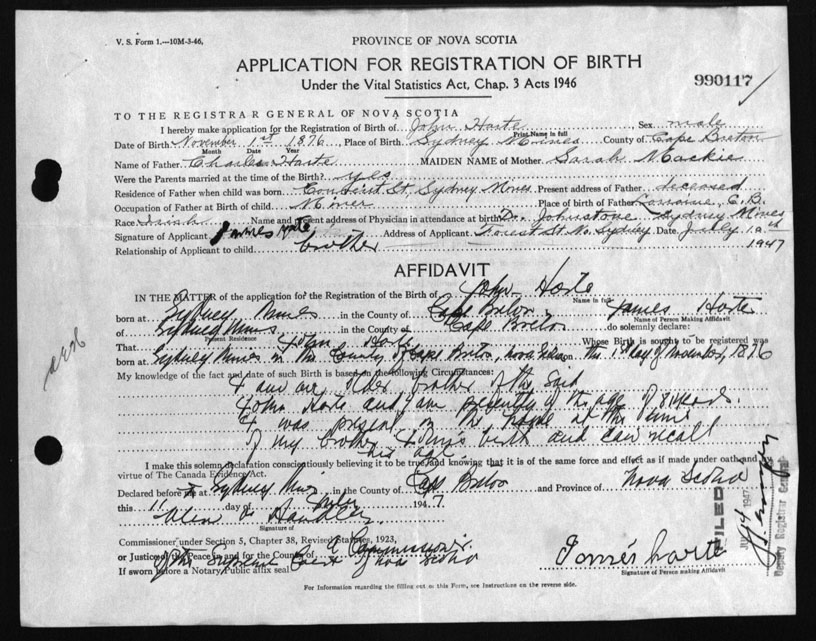 V. S. Form 1.—10M-3-46.
PROVINCE OF NOVA SCOTIA
APPLICATION FOR REGISTRATION OF BIRTH
Under the Vital Statistics Act, Chap. 3 Acts 1946
990117
TO THE REGISTRAR GENERAL OF NOVA SCOTIA
I hereby make application for the Registration of Birth of John Harte, Sex male
Print Name in full
Date of Birth November 1st 1876 Place of Birth Sydney Mines County of Cape Breton
Month Date Year
Name of Father Charles Harte MAIDEN NAME of Mother Sarah Mackie
Were the Parents married at the time of the Birth? yes
Residence of Father when child was born St, Sydney Mines Present address of Father deceased
Occupation of Father at Birth of child Miner Place of birth of Father Lorraine, C.B.
Race Irish Name and Present address of Physician in attendance at birth Dr. Johnstone Sydney Mines
Signature of Applicant James Address of Applicant Forest St. No. Sydney Date July 10th
Relationship of Applicant to child brother 1947
AFFIDAVIT
IN THE MATTER of the application for the Registration of Birth of John Harte
Name in full
born at Sydney Mines in the County of Cape Breton I James Harte
Name of Person Making Affidavit
of Sydney Mines in the County of Cape Breton do solemnly declare:
Present Residence
That John Harte Whose Birth is sought to be registered was
born at Sydney Mines in the County of Cape Breton, Nova Scotia on the 1st day of November, 1876
My knowledge of the fact and date of such Birth is based on the following Circumstances:
I am an older brother of the said
John Harte and I am presently of the age of 81 years.
I was present in the home at the time
of my brother John's birth and can recall
his age.
I make this solemn declaration consciously believing it to be true and knowing that it is of the same force and effect as if made under oath and by
virtue of The Canada Evidence Act.
Declared before me at Sydney Mines in the County of Cape Breton and Province of Nova Scotia
this 11 day of July 1947
Signature of
Commissioner under Section 5, Chapter 38, Revised Statutes, 1923,
or Justice of the Peace in and for the County of A Commissioner
of the Supreme Court of Nova Scotia
If sworn before a Notary Public affix seal
James Harte
Signature of Person Making Affidavit
For Information regarding the filling out of this Form, see Instructions on the reverse side.
FILED
14 1947
Deputy Registrar General